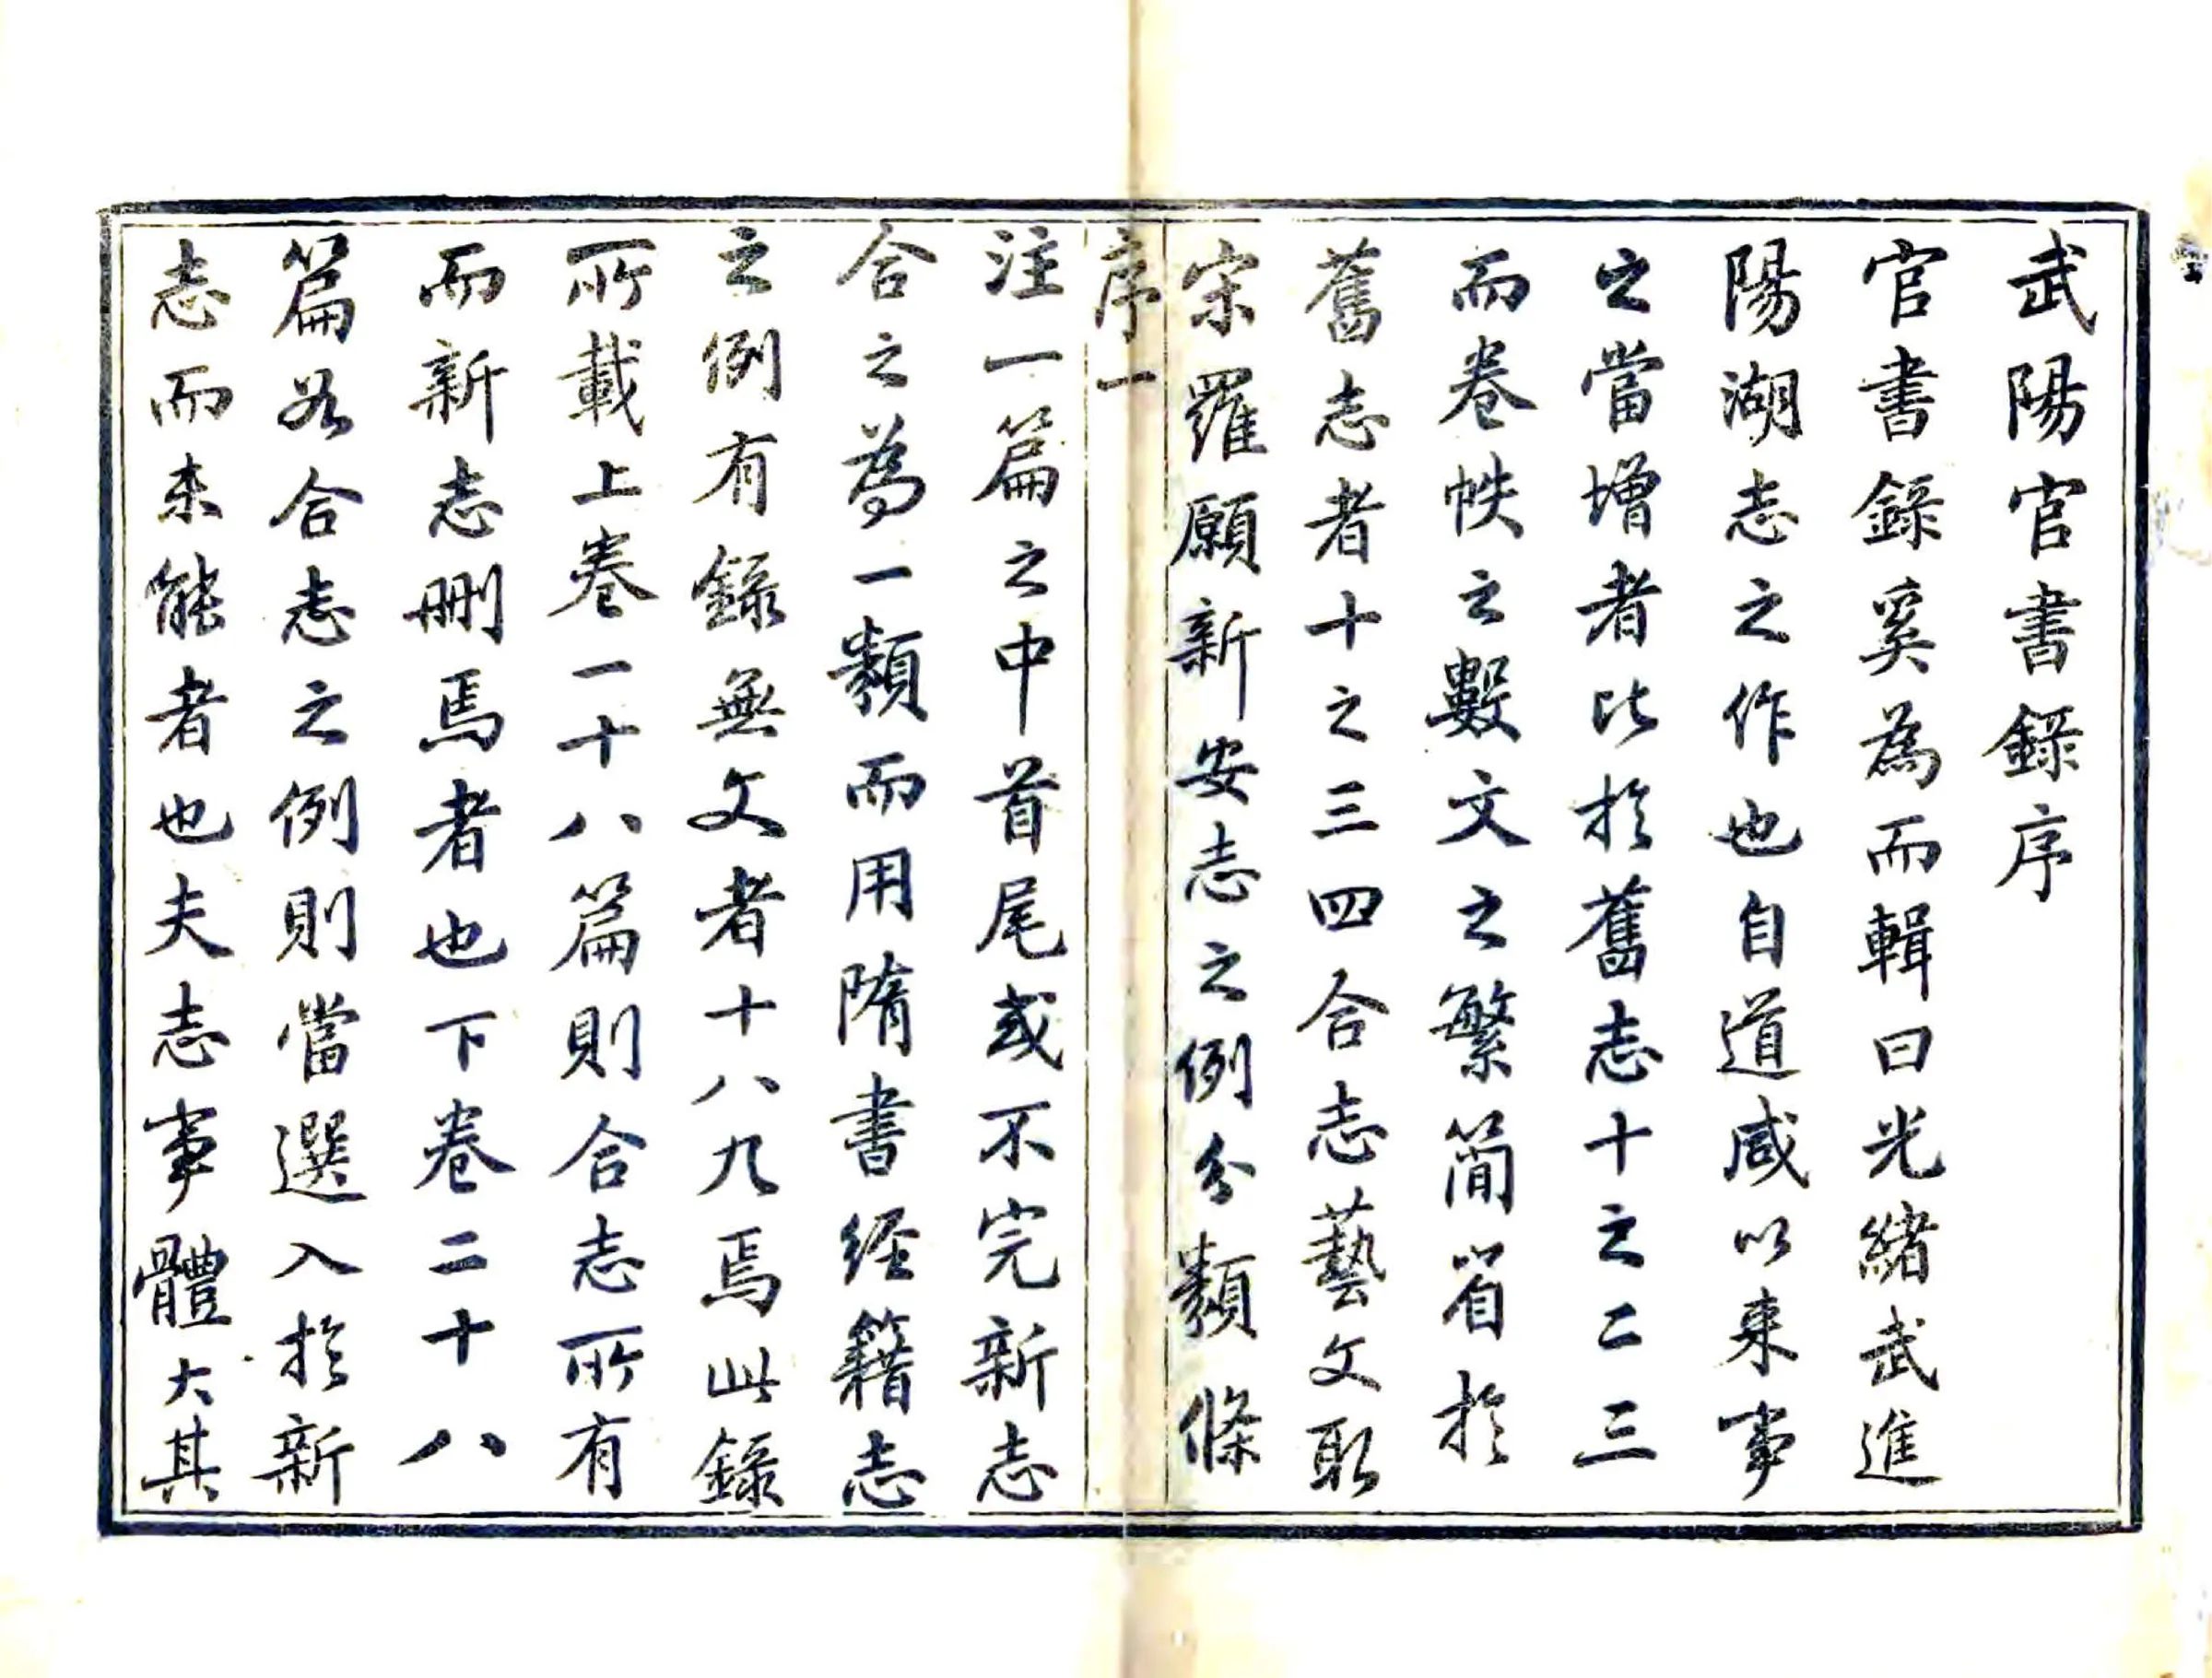 武陽官書錄序
官書錄奚為而輯曰光緒武進
陽湖志之作也自道咸以來事
之當增者比於舊志十之二三
而卷帙之數文之繁簡省於
舊志者十之三四合志藝文取
宋羅願新安志之例分類條
序一
注一篇之中首尾或不完新志
合之為一類而用隋書經籍志
之例有錄無文者十八九焉此錄
所載上卷一十八篇則合志所有
而新志刪焉者也下卷二十八
篇於合志之例則當選入於新
志而未能者也夫志事體大其